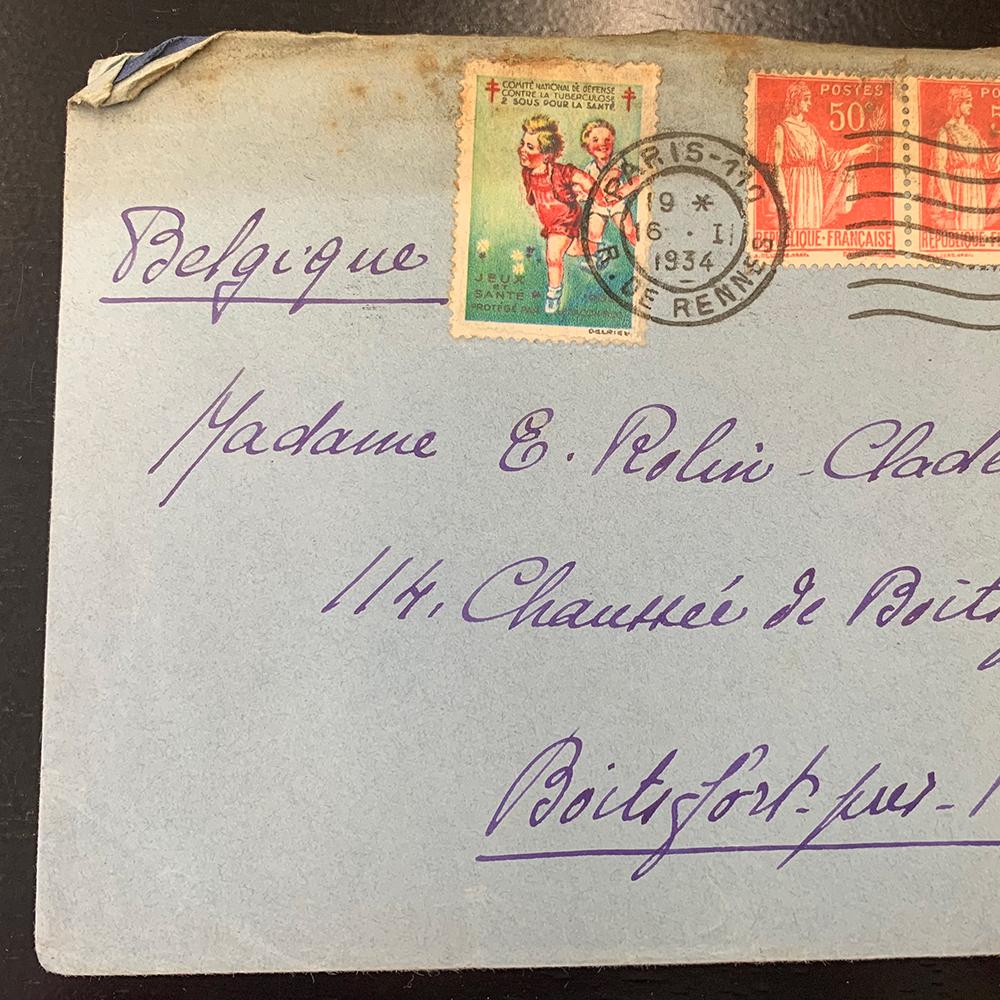 COMITÉ NATIONAL DE DÉFENSE
CONTRE LA TUBERCULOSE
2 SOUS POUR LA SANTÉ
JEUX
ET
SANTÉ
PROTÉGÉ PAR
DELRIEU
PARIS-110
19 *
16 · I
1934
R. DE RENNES
POSTES
50c
RÉPUBLIQUE-FRANÇAISE
PO
5
RÉPUBLIQUE-F
Belgique
Madame E. Rolin-Clade
114, Chaussée de Boits
Boitsfort-